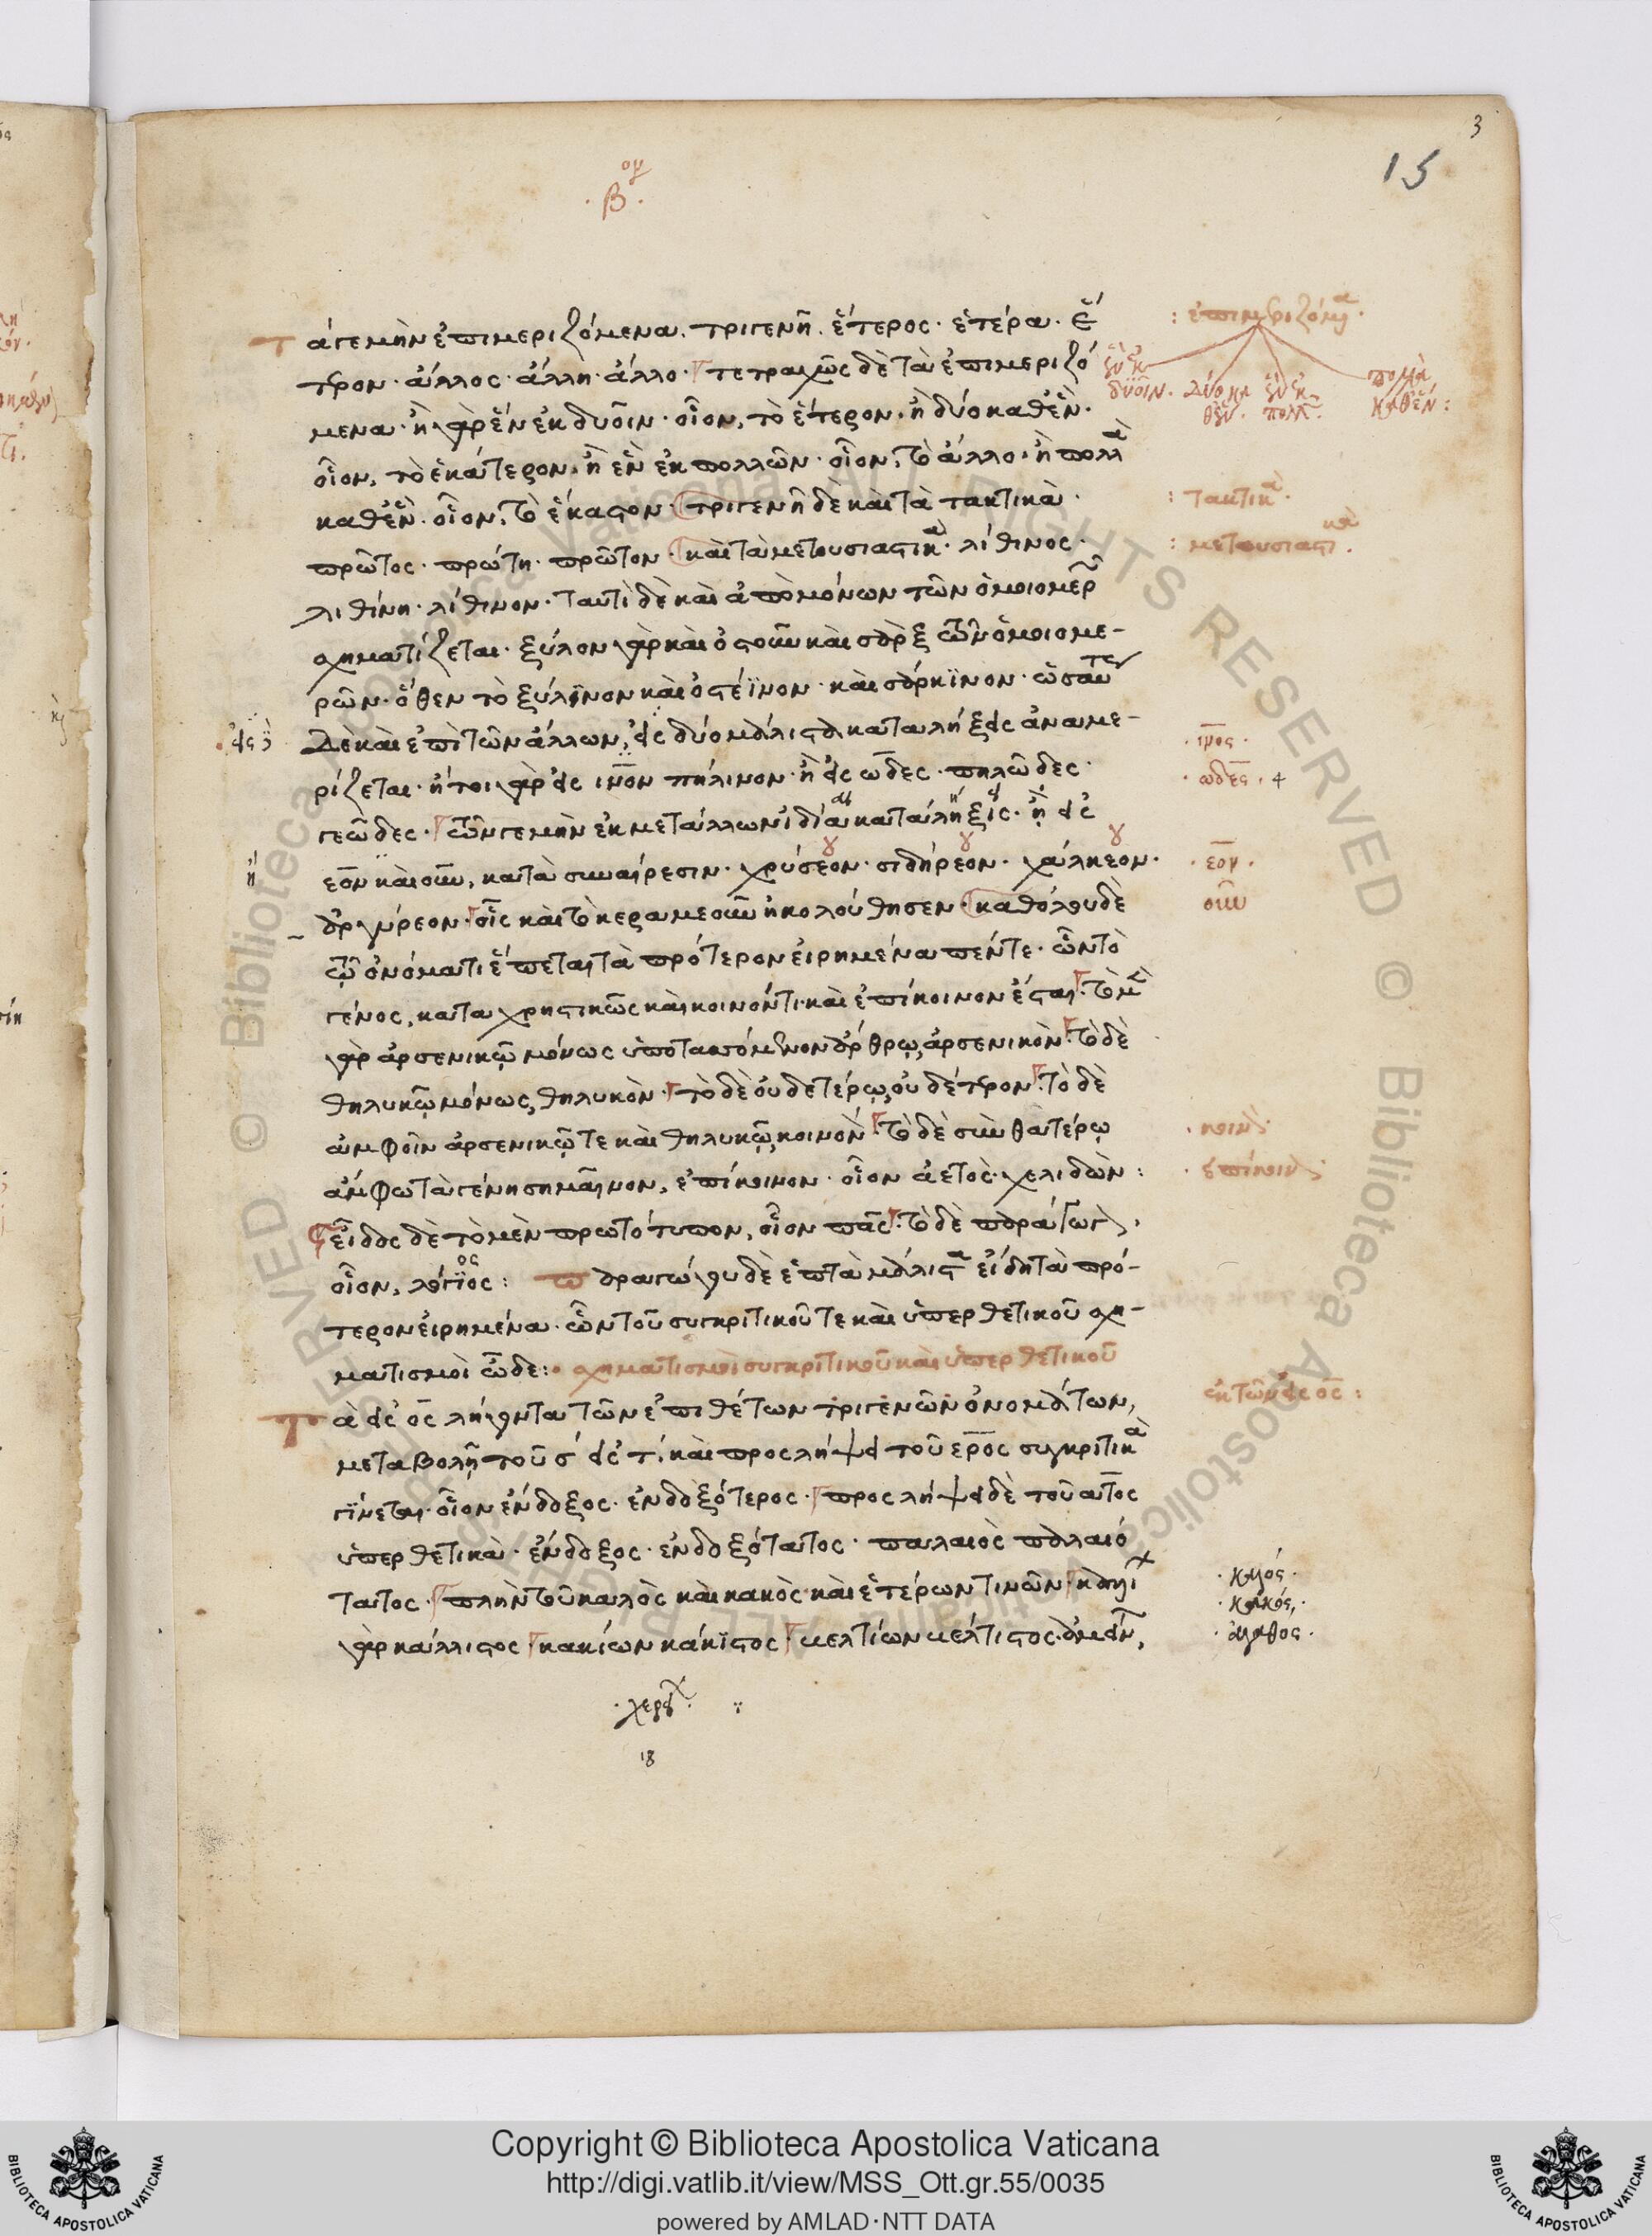 3
15
ου
·β·
Τάγε μὴν ἐπιμεριζόμενα. τριγενῆ. ἕτερος· ἑτέρα· ἕ
τερον· ἄλλος· ἄλλη· ἄλλο· τετραχῶς δὲ τὰ ἐπιμεριζό
μενα· ἢ γὰρ ἓν ἐκ δυοῖν· οἷον, τὸ ἕτερον· ἢ δύο καθέν·
οἷον, τὸ ἑκάτερον· ἢ ἓν ἐκ πολλῶν· οἷον, τὸ ἄλλο· ἢ πολλὰ
καθέν· οἷον, τὸ ἕκαστον· τριγενῆ δὲ καὶ τὰ τακτικὰ·
πρῶτος· πρώτη· πρῶτον· καὶ τὰ μετουσιαστικὰ· λίθινος·
λιθίνη· λίθινον· ταυτὶ δὲ καὶ ἀπὸ μόνων τῶν ὁμοιομερῶν
σχηματίζεται· ξύλον γὰρ καὶ ὀστοῦν καὶ σὰρξ τῶν ὁμοιομε-
ρῶν· ὅθεν τὸ ξύλϊνον καὶ ὀστέϊνον· καὶ σάρκϊνον· ὡσαύτως
δὲ καὶ ἐπὶ τῶν ἄλλων, εἰς δύο μάλιστα καταλήξεις ἀναμε-
ρίζεται· ἤτοι γὰρ εἰς ινον πήλινον· ἢ εἰς ωδες· πηλῶδες·
γεῶδες· τῶν γε μὴν ἐκ μετάλλων ἰδία κατάληξις· ἡ εἰς
εον καὶ ουν, κατὰ συναίρεσιν· χρύσεον· σιδήρεον· χάλκεον·
ἀργύρεον· οἷς καὶ τὸ κεραμεοῦν ἠκολούθησεν· καθόλου δὲ
τῷ ὀνόματι ἕπεται τὰ πρότερον εἰρημένα πέντε· ὧν τὸ
γένος, καταχρηστικῶς καὶ κοινόν τι καὶ ἐπίκοινον ἔσται· τὸ μὲν
γὰρ ἀρσενικῷ μόνως ὑποτασσόμενον ἄρθρῳ, ἀρσενικὸν· τὸ δὲ
θηλυκῷ μόνως, θηλυκὸν· τὸ δὲ οὐδετέρῳ, οὐδέτερον· τὸ δὲ
ἀμφοῖν ἀρσενικῷ τε καὶ θηλυκῷ, κοινόν· τὸ δὲ σὺν θατέρῳ
ἄμφω τὰ γένη σημαῖνον, ἐπίκοινον· οἷον ἀετὸς· χελιδὼν:
εἶδος δὲ τὸ μὲν πρωτότυπον, οἷον πᾶς· τὸ δὲ παράγωγον,
οἷον, λόγϊος: παραγώγου δὲ ἑπτὰ μάλιστα εἴδη τὰ πρό-
τερον εἰρημένα· ὧν τοῦ συγκριτικοῦ τε καὶ ὑπερθετικοῦ σχη-
ματισμοὶ ὧδε: σχηματισμοὶ συγκριτικοῦ καὶ ὑπερθετικοῦ
Τὰ εἰς ος λήγοντα τῶν ἐπιθέτων τριγενῶν ὀνομάτων,
μεταβολῇ τοῦ σ εἰς τ, καὶ προσλήψει τοῦ ερος συγκριτικὰ
γίνεται· οἷον ἔνδοξος· ἐνδοξότερος· προσλήψει δὲ τοῦ ατος
ὑπερθετικὰ· ἔνδοξος· ἐνδοξότατος· παλαιὸς παλαιό
τατος· πλὴν τοῦ καλὸς καὶ κακὸς καὶ ἑτέρων τινῶν·
γὰρ κάλλιστος κακίων κάκϊστος βελτίων βέλτιστος· ἀμείνων,
·χερου·
18
: ἐπιμεριζόμενα·
ἓν ἐκ
δυοῖν.
δύο κα
θέν.
ἓν ἐκ
πολλ.
πολλὰ
καθέν:
: τακτικὰ·
: μετουσιαστικὰ.
·ινος·
·ωδες·
·εον·
ουν
·κοινὸν
·ἐπίκοινον
ἐκ τῶν εἰς ος:
·καλός·
·κακός,·
·ἀγαθος·
Copyright © Biblioteca Apostolica Vaticana
http://digi.vatlib.it/view/MSS_Ott.gr.55/0035
powered by AMLAD·NTT DATA
BIBLIOTECA APOSTOLICA VATICANA
BIBLIOTECA APOSTOLICA VATICANA